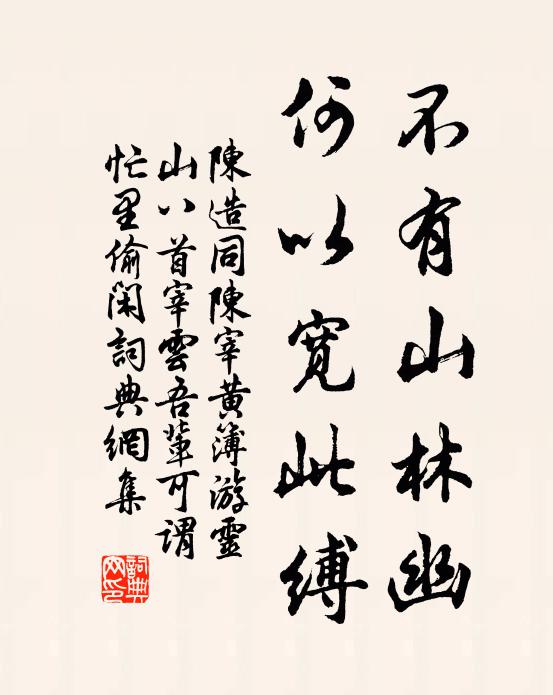 不有山林幽
何以寛此縛
陳造同陳宰黄簿游靈
山八首宰雲吾輩可謂
忙里偷閑詞典網集
詞典网印